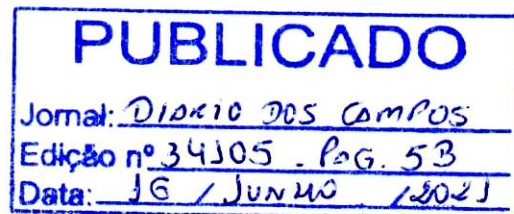 PUBLICADO
Jornal: DIARIO DOS CAMPOS
Edição nº 34105 . PAG. 5B
Data: 16 / JUNHO / 2021